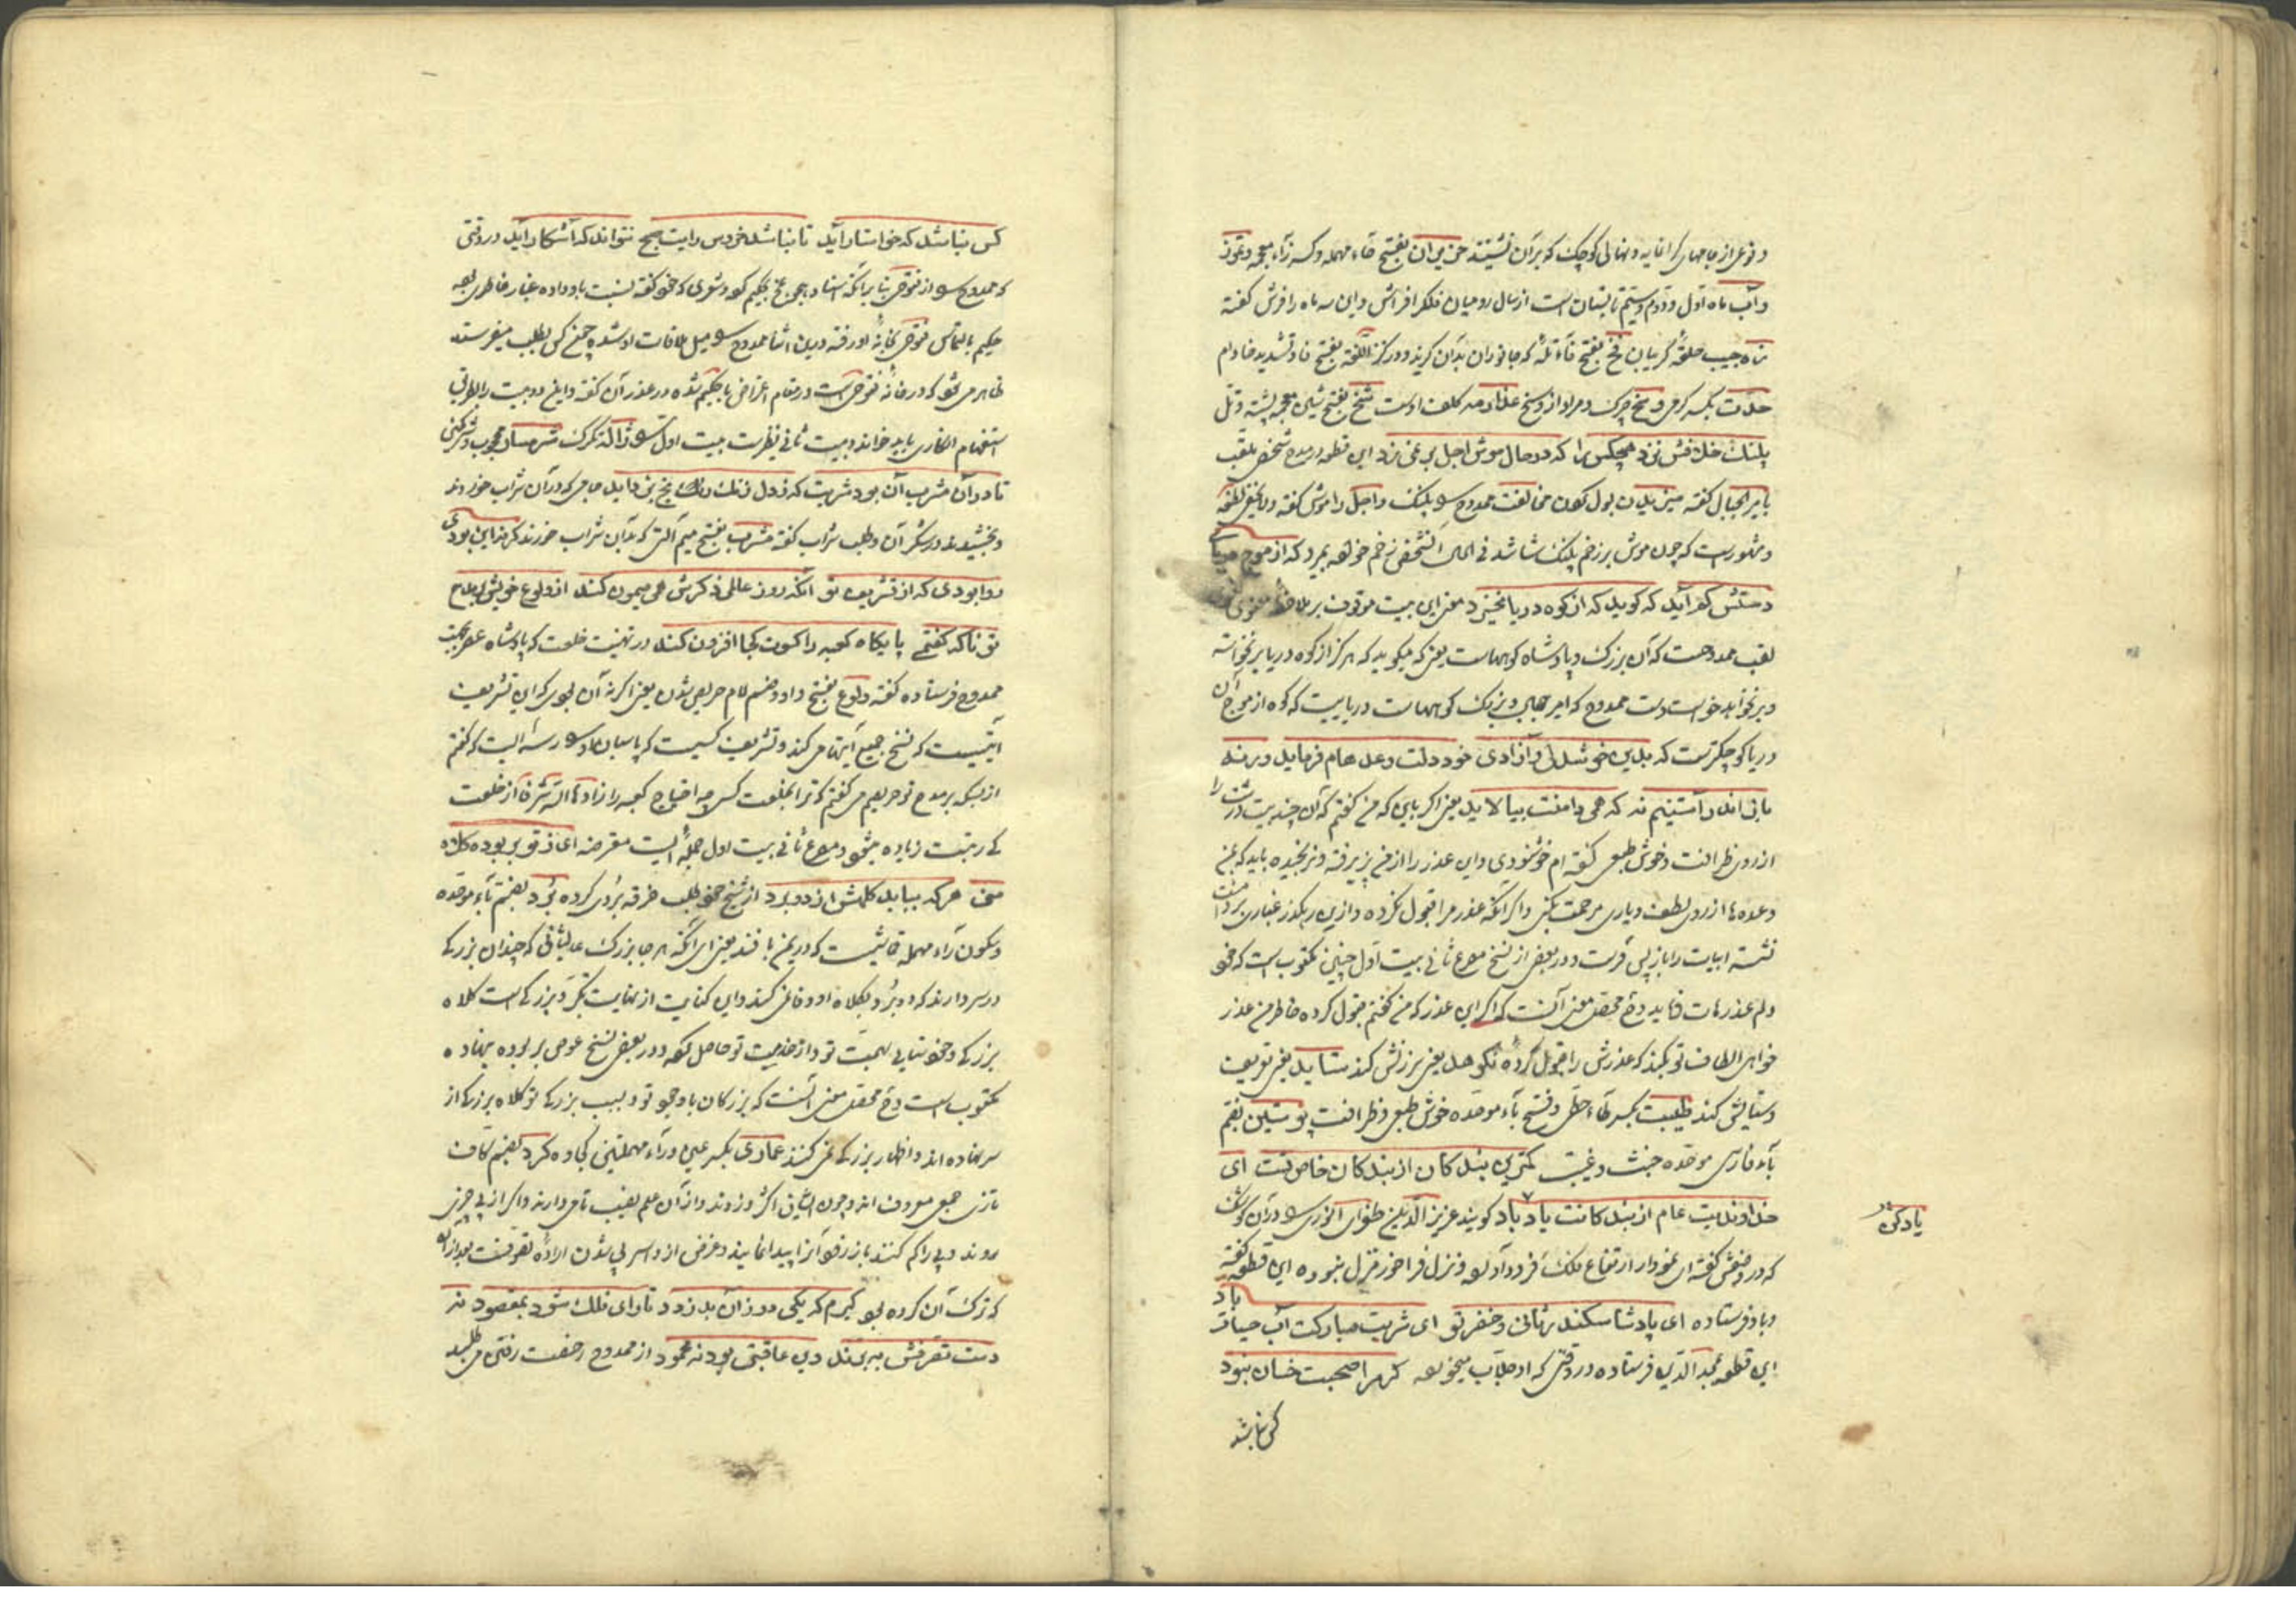 و نوعی از جامهای گرانمایه و نهالی کوچک که بر آن نشینند حزیران بفتح حاء مهمله و کسر زاء معجمه و تموز
و آب ماه اول و دوم و سیم تابستان است از سال رومیان فلک فراش و این سه ماه را فرش گفته
جیب حلقهٔ گریبان فخ بفتح فاء تله که جانوران بدان گیرند و در کنز اللغه بفتح فا و تشدید خا دام
بکسر کرمی وسخ چرک و مراد از وسخ کلفت اوست شخ بفتح شین معجمه پشته و تل
پلنک خلافش نزد هیچکس را که در حال موش اجل بر نمیزد این قطعه در مدح شخص ملقب
بامیر الجبال گفته میزیدن بول کردن مخالفت ممدوح را پلنک و اجل را موش گفته
و مشهور است که چون موش بر زخم پلنک شاشد فی الحال آن شخص زخم خورده بمیرد که از موج
دستش کفر آید که کوید که از کوه دریا نخیزد معنی این بیت موقوف بر ملاحظهٔ معنوی
لقب ممدوحست که آن بزرک و پادشاه کوههاست یعنی که میکوید که هرکز از کوه دریا برنخواسته
و بر نخواهد خواست دست ممدوح که امیر جبال و بزرک کوههاست دریاییست که کوه از موج آن
دریا کوچکترست که بدین خوشدلی و آزادی خود دلت وعدهام فرماید ور نه
مانی اند در آستینم نه که همی دامنت بیالاید یعنی اکر باین که من کفتم که آن چند بیت درشت را
از روی ظرافت و خوش طبعی کفته ام خوشنودی و این عذر را از من پزیرفته و نرنجیده باید که بمن
وعده ها از روی لطف و یاری مرحمت بکنی و اکر آنکه عذر مرا قبول نکرده و ازین رهکذر غباری بر دامنت
نشسته ابیات را باز پس فرست و در بعضی از نسخ مصرع ثانی بیت اول چنین مکتوب است که خود
ولم عذرهات فاید و ح محصل معنی آنست که اکر این عذر که من کفتم قبول کرده خاطر من عذر
خواهی الطاف تو بکند که عذرش را قبول کرده نکوهد یعنی سرزنش کند ستاید یعنی تعریف
و ستایش کند طیبت بکسر طاء حطی و فتح باء موحده خوش طبعی و ظرافت پوستین بضم
باء فارسی موحده خبث و غیبت کمترین بندکان از بندکان خاص تست ای
خداوندیت عام از بندکانت یاد باد کویند عزیز الدین طغرای انوری را در آن کوشک
که در وصفش کفته ای نمودار ارتفاع فلک فرود آورده و نزل فراخور منزل نبوده این قطعه کفته
و باو فرستاده ای پادشا سکندر ثانی و خضر تو ای شربت مبارکت آب حیات باد
این قطعه بمجد الدین فرستاده در وقتی که او جلاب میخورده کر مرا صحبت خسان نبود
کس نباشد
یاد کن
کس نباشد که خواستار آید تا نباشد خروس رایت صبح نتواند که آشکار آید در وقتی
که ممدوح را از فتوحی بنا بر آنکه اسناد هجو بلخ بحکیم کرده و شعری که خود کفته نسبت باو داده غبار خاطری بوده
حکیم بالتماس فتوحی بخانهٔ او رفته درین اثنا ممدوح را میل ملاقات او شده چون کس بطلب میفرستد
ظاهر می شود که در خانهٔ فتوحی است در مقام اعتراض با حکیم شده در عذر آن کفته و این دو بیت را بطریق
استفهام انکاری باید خواند و بیت ثانی نظیر بیت اول را ژاله تکرک شرمسار محجوب و شرکنی
تا در آن مشرب آن بود شربت که ز دل زنک رنج بزداید جامی که در آن شراب خورند
و بخشیدند در شکر آن و طلب شراب کفته مشرب بفتح میم آلتی که بدان شراب خورند کر نه این بودی
روا بودی که از تشریف تو آنکه روز عالمی ذکرش همی میمون کند از ولوع خویش در مدح
تو ناکه کفتمی پایکاه کعبه را کسوت کجا افزون کند در تهنیت خلعت که پادشاه عصر بجهت
ممدوح فرستاده کفته ولوع بفتح واو و ضم لام حریص شدن یعنی اکر نه آن بودی که این تشریف
آیتیست که نسخ جمیع آیتها می کند و تشریف کسیست که پاسبان رسد کفتم
از بسکه بر مدح تو حریصم می کفتم که ترا بخلعت کس چه احتیاج کعبه را زادها الله شرفا از خلعت
کی رتبت زیاده میشود و مصرع ثانی بیت اول جملهٔ ایست معترضه ای ز تو بر بوده کلاه
منی هر که بیابد کلهش از دو برد از شیخ خود طلب خرقه بردی کرده برد بضم باء موحده
و سکون راء مهمله قماشیست که در یمن بافند یعنی ای آنکه هر جا بزرک عالیشانی که چندان بزرکی
در سر دارند که دو برد بکلاه او وفا نمی کند و این کنایت از نهایت تکبر و بزرکی است کلاه
بزرکی و خودستایی بهیبت تو و از خدمت تو حاصل کرده و در بعضی نسخ عوض بر بوده بنهاده
مکتوب است و ح محصل معنی آنست که بزرکان با وجود تو و بسبب بزرکی تو کلاه بزرکی از
سر نهاده اند و اظهار بزرکی نمی کنند عماری بکسر عین و راء مهملتین کجاوه کرد بضم کاف
تازی جمعی معروف اند و چون ایشان اکثر دزدند و از آن علم نصیب تامی دارند و اکر از پی چیزی
روند و پی را کم کنند باز رفته آنرا پیدا نمایند و غرض از و اسر پی شدن ارادهٔ تصرفست بعد از آنکه
که ترک آن کرده بود کیرم که یکی روز آن بدزدد تا رای فلک شود بمقصود نه
دست تصرفش ببرند دی عاقبتی بود نه محمود از ممدوح رخصت رفتن می طلبد